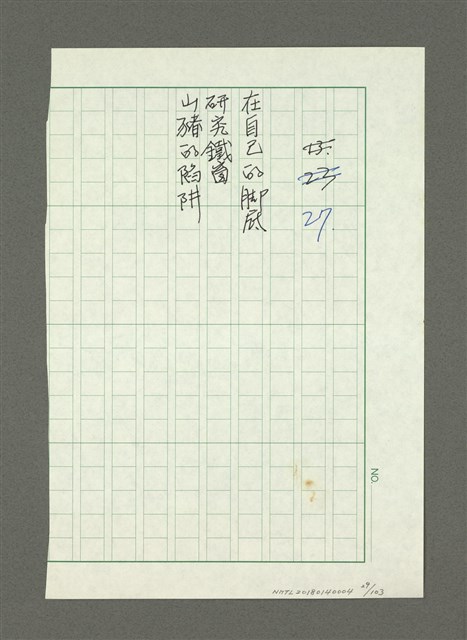 27
在自己的腳底
研究鐵齒
山豬的陷阱
NO.
NMTL20180140004 29/103